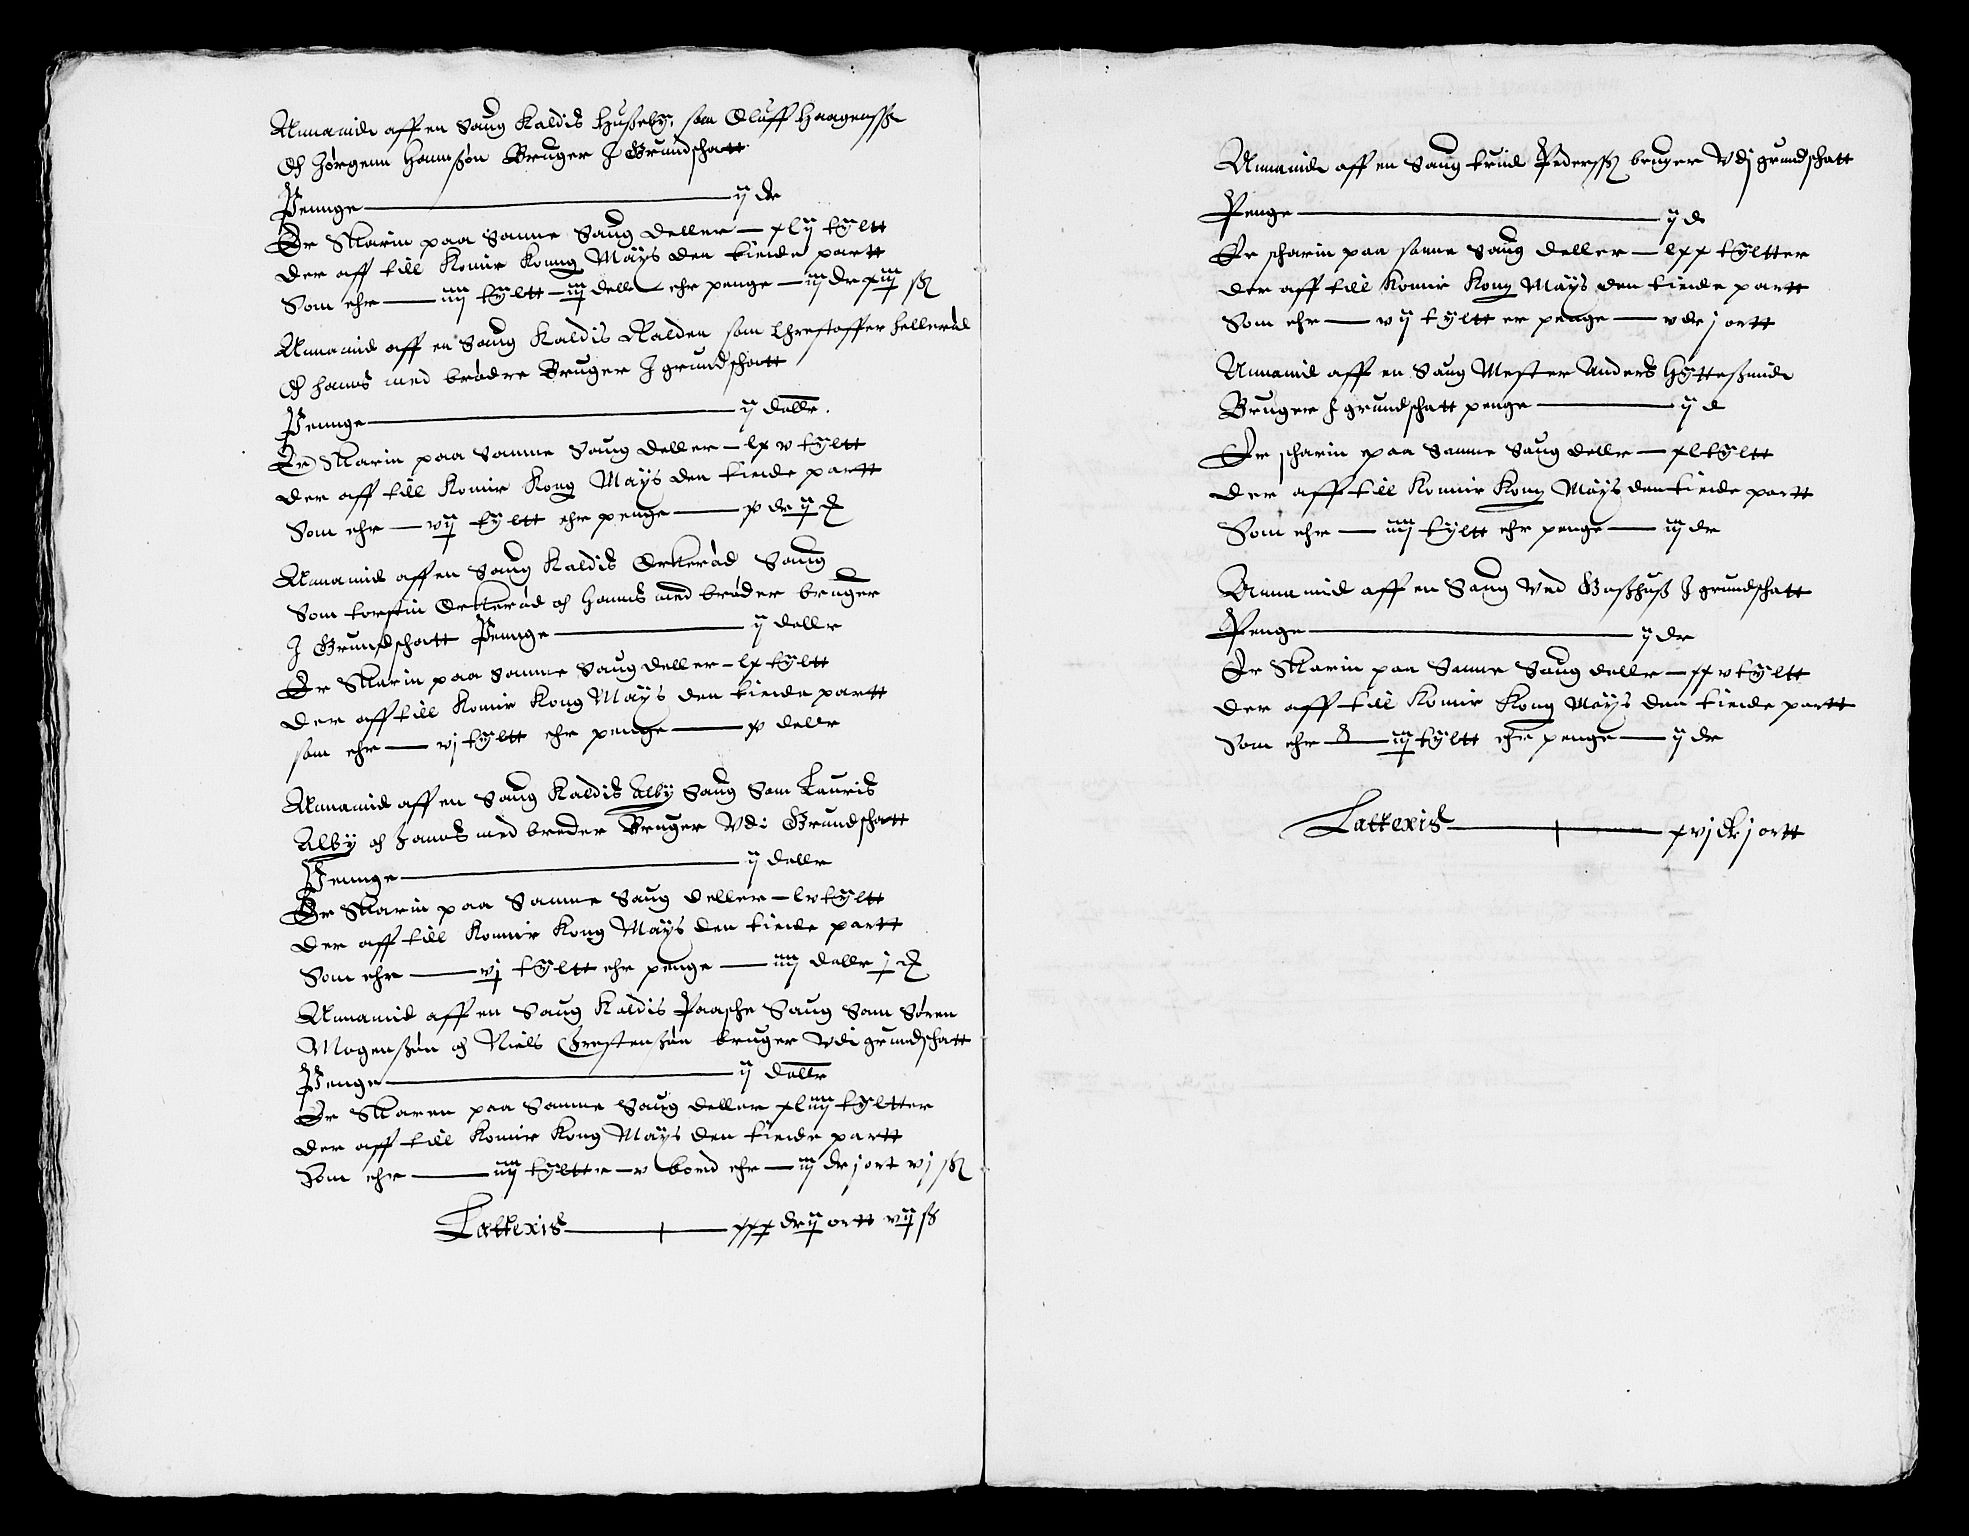 Annamid aff en Saug Kaldis Hußeby, som Oluff Haagenssß
Och Jørgenn Hannßøn Bruger I Grundschatt
Pennge — ij dr
Er Skarin paa Samme Saug deller — xlij tÿltt
der aff till Konnir Konng Maÿs den tiende partt
Som ehr — iiij tÿltt — iij delle ehr penge — iij dr xiiij sß
Annamid aff en Saug Kaldis Ralden som Chrestoffer Hellerød
Och Hanns med brødre Bruger I grundschatt
Pennge — ij daller.
Er Skarin paa Samme Saug deller — lxv tÿltt
der aff till Konnir Kong Maÿs den tiende partt
Som ehr — vij tÿltt ehr penge — v dr ij
Annamid aff en Saug Kaldis Orkerød Saug
Som torstin Orkerød och Hanns med brøder bruger
I Grundschatt Pennge — ij dallr
Er Skarin paa Samme Saug deller — lx tÿltt
der aff till Konnir Kong Maÿs den tiende partt
som ehr — vj tÿltt ehr penge — v dallr
Annamid aff en Saug Kaldis Alby Saug Som Lauris
Alby och Hanns med brøder Bruger Vdi Grundschatt
Pennge — ij dallr
Er Skarin paa Samme Saug deller — lv tÿltt
der aff till Konnir Kong Maÿs den tiende partt
Som ehr — vj tÿltt ehr penge — iiij dallr j
Annamid aff en Saug Kaldis Paasche Saug Som Søren
Mogenßøn och Niels Chrestenßøn bruger Vdi grundschatt
Penge — ij dallr
Er Skaren paa Samme Saug deller xliiij tÿltter
der aff till Konnir Kong Maÿs den tiende partt
Som ehr — iiij tÿltter — v bord ehr — iij dr j ort vj sß
Lattexis — xxx dr ij ortt vij ß
Annamid aff en Saug truid Pedersß bruger Vdj grundschatt
Penge — ij d
Er scharin paa samme Saug deller — lxx tÿltter
der aff till Konnir Kong Maÿs den tiende partt
Som ehr — vij tÿltt er penge — v dr j ortt
Annamid aff en Saug Mester Anders Hÿtteßmid
Bruger I grundschatt penge — ij d
Er scharin paa Samme Saug dellr — xl tÿltt
der aff till Konnir Kong Maÿs den tiende partt
Som ehr — iiij tÿltt ehr penge — iij dr
Annamid aff en Saug Ved Gaßhuß I grundschatt
Penge — ij dr
Er Skarin paa Samme Saug dellr — xxv tÿltt
der aff till Konnir Kong Maÿs den tiende partt
Som ehr — iij tÿltt ehr penge — ij dr
Lattexis — xvj dr j ortt